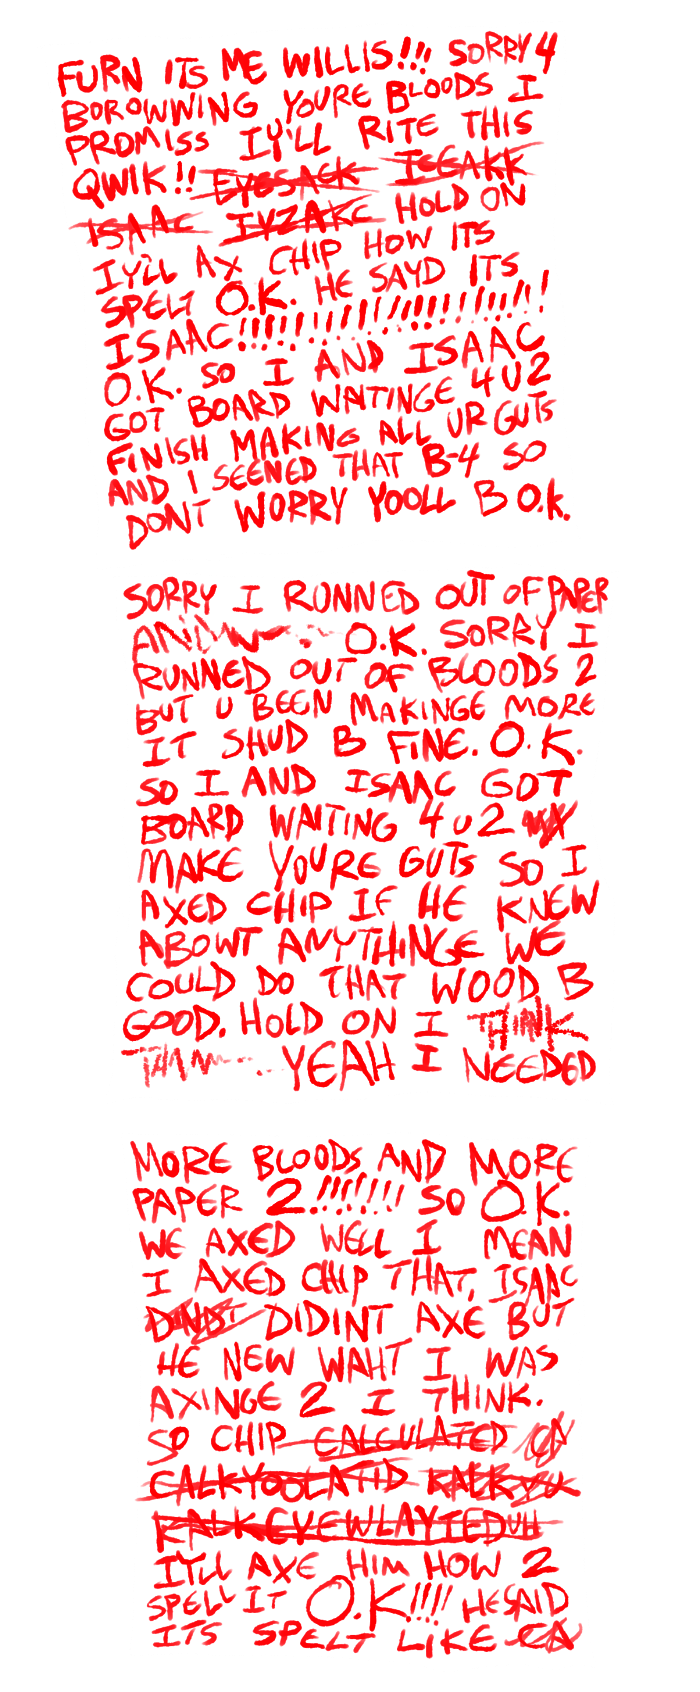 FURN ITS ME WILLIS!!! SORRY 4
BOROWWING YOURE BLOODS I
PROMISS IY'LL RITE THIS
QWIK!! EYESACK ISEAKK
ISAAC IYZAKC HOLD ON
IY'LL AX CHIP HOW ITS
SPELT O.K. HE SAYD ITS
ISAAC!!!!!!!!!!!!!!!!!!!!
O.K. SO I AND ISAAC
GOT BOARD WAITINGE 4U2
FINISH MAKING ALL UR GUTS
AND I SEENED THAT B-4 SO
DONT WORRY YOOLL B O.K.
SORRY I RUNNED OUT OF PAPER
AND O.K. SORRY I
RUNNED OUT OF BLOODS 2
BUT U BEEN MAKINGE MORE
IT SHUD B FINE. O.K.
SO I AND ISAAC GOT
BOARD WAITING 4 U 2
MAKE YOURE GUTS SO I
AXED CHIP IF HE KNEW
ABOWT ANYTHINGE WE
COULD DO THAT WOOD B
GOOD. HOLD ON I THINK
YEAH I NEEDED
MORE BLOODS AND MORE
PAPER 2!!!!!!! SO O.K.
WE AXED WELL I MEAN
I AXED CHIP THAT, ISAAC
DINDT DIDINT AXE BUT
HE NEW WAHT I WAS
AXINGE 2 I THINK.
SO CHIP CALCULATED CA
CALKYOOLATID KALKYU
KALKEYEWLAYTEDUH
IYLL AXE HIM HOW 2
SPELL IT O.K!!!! HE SAID
ITS SPELT LIKE CA